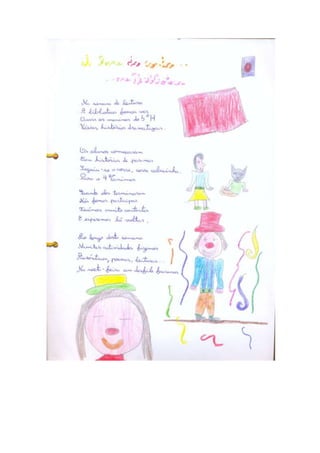 A hora do conto...
...na Biblioteca
Na semana da leitura
À biblioteca fomos nós
Ouvir os meninos do 5º H
Várias histórias dramatizar.
Os alunos começaram
Com histórias de
Seguiu-se o
Para o 4º
Quando eles terminaram
Nós fomos participar
Ficámos muito contentes
E esperamos lá voltar.
Ao longo desta semana
Muitas atividades fizemos
poemas, leituras...
Na sexta-feira um desfile faremos